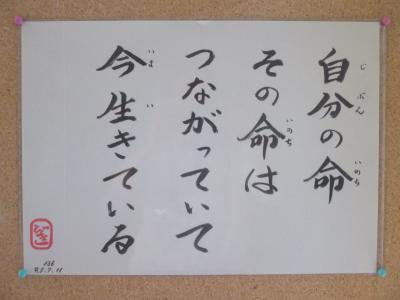 自分の命
その命は
つながっていて
今生きている
じぶん
いのち
いのち
いま
い
136
R5.7.11